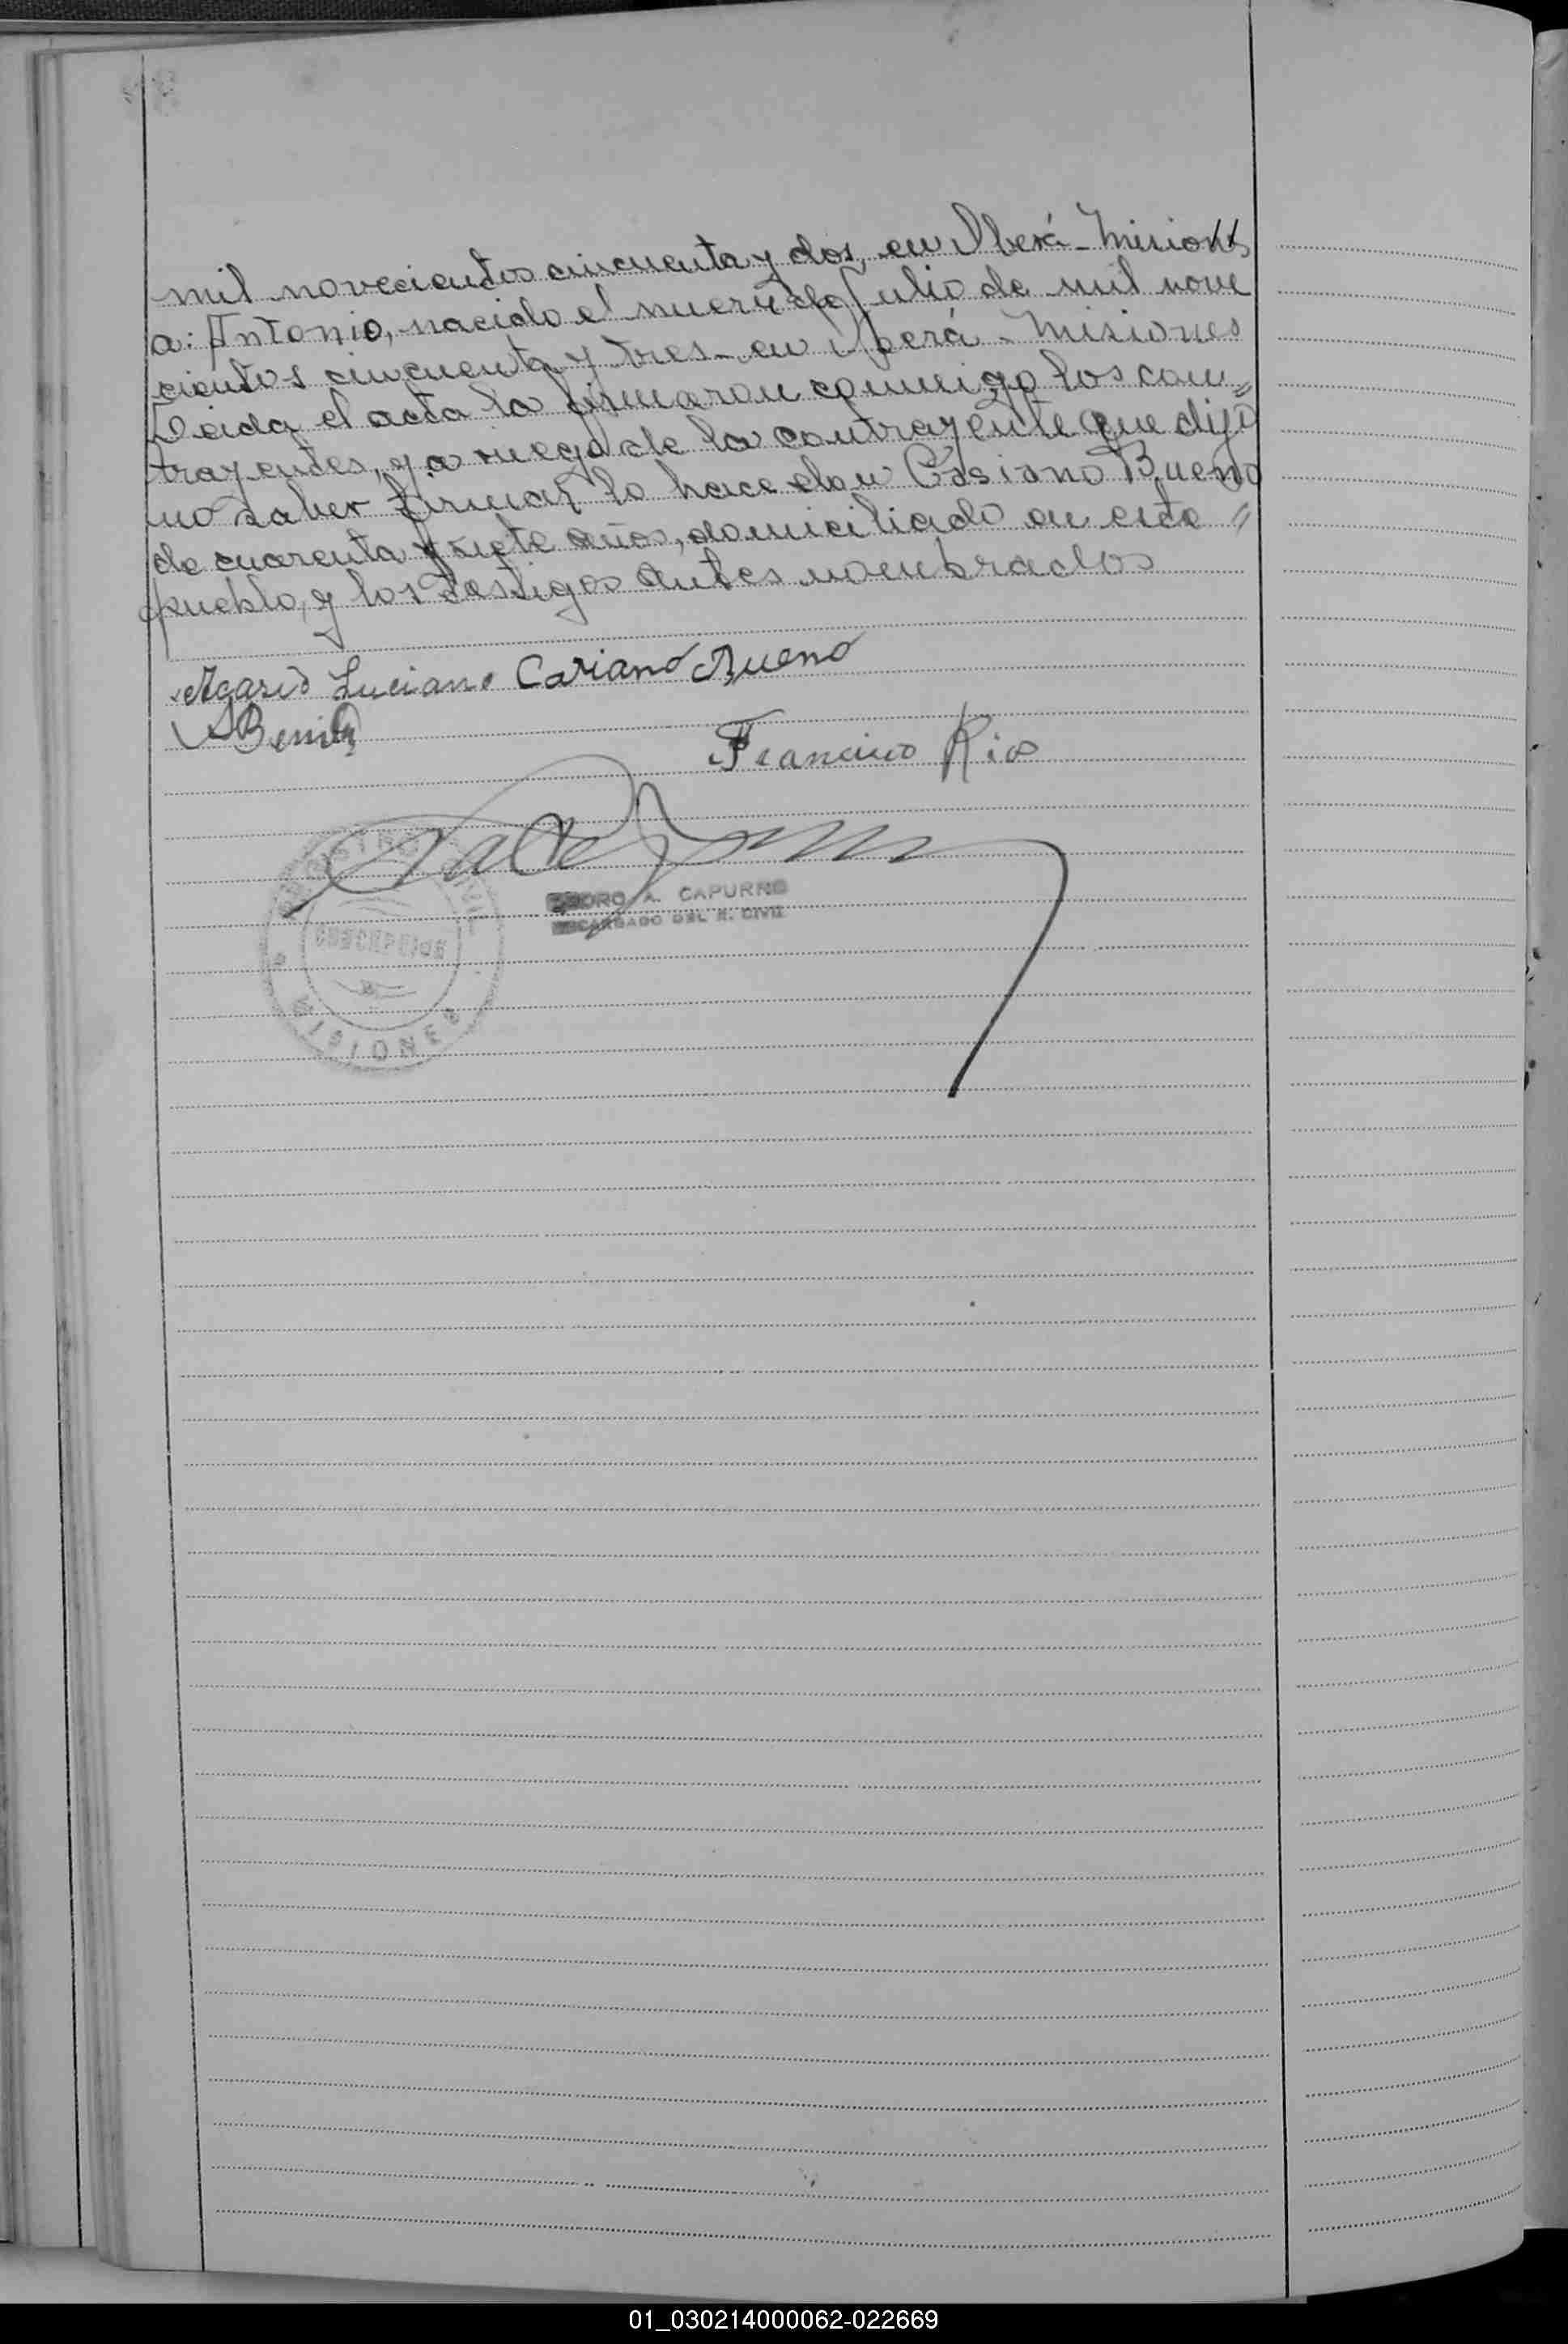 mil novecientos cincuenta y dos, en Oberá - Misiones
a: Antonio, nacido el nueve de Julio de mil nove
cientos cincuenta y tres - en Oberá - Misiones
Leida el acta la firmaron conmigo los con=
trayentes, y a ruego de la contrayente que dijo
no saber firmar lo hace don Casiano Bueno
de cuarenta y siete años, domiciliado en este =
pueblo, y los testigos antes nombrados
Luciano Cariano Bueno
Francisco Rios
PEDRO A. CAPURRO
ENCARGADO DEL R. CIVIL
REGISTRO CIVIL
CONCEPCION
MISIONES
01_030214000062-022669